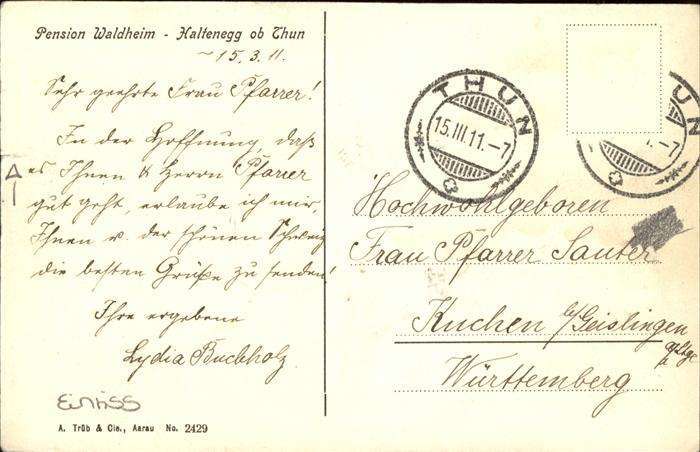 Pension Waldheim - Haltenegg ob Thun
15.3.11.
Sehr geehrte Frau Pfarrer!
In der Hoffnung, daß
es Ihnen & Herrn Pfarrer
gut geht, erlaube ich mir,
Ihnen v. der schönen Schweiz
die besten Grüße zu senden!
Ihre ergebene
Lydia Buchholz
Einriss
A. Trüb & Cie., Aarau No. 2429
THUN
15.III.11.-7
UN
1.-7
Hochwohlgeboren
Frau Pfarrer Sauter
Kuchen b/Geislingen
Württemberg